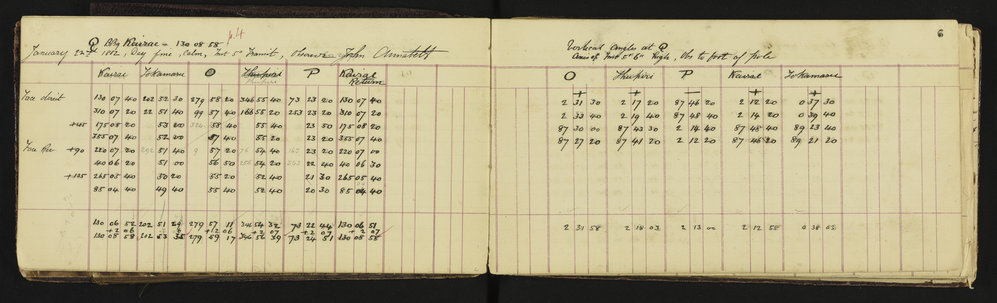 Q Brg Kairae = 130 08 58 p.4
January 22nd 1912, Day fine, Calm, Inst 5" Transit, Observer John
Kairae Tokamaru O Thupiri P Kairae
Return
Face direct 130 07 40 202 52 30 279 58 20 346 55 40 73 23 20 130 07 40
310 07 20 22 51 40 99 57 40 166 55 20 253 23 20 310 07 20
+45 175 08 20 53 00 58 40 55 40 23 50 175 08 20
355 07 40 52 00 57 40 55 20 23 20 355 07 40
Face Rev +90 220 07 20 51 40 9 57 20 76 54 40 163 23 20 220 07 00
40 06 20 51 00 56 50 256 54 20 22 40 40 06 30
+135 265 05 40 50 20 55 20 52 40 21 30 265 05 40
85 04 40 49 40 55 40 52 40 20 30 85 04 40
130 06 52 202 51 29 279 57 11 346 54 32 73 22 44 130 06 51
+2 06 +2 06 +2 07 +2 07 +2 07
130 08 58 202 53 35 279 59 17 346 56 39 73 24 51 130 08 58
6
Vertical angles at Q
Axis of Inst 5' 6" high, Obs to foot of pole
O Thupiri P Kairae Tokamaru
+ + — + +
2 31 30 2 17 20 87 46 20 2 12 20 0 37 30
2 33 40 2 19 40 87 48 40 2 14 20 0 39 40
87 30 00 87 43 30 2 14 40 87 48 40 89 23 40
87 27 20 87 41 20 2 12 20 87 46 20 89 21 20
2 31 58 2 18 03 2 13 00 2 12 55 0 38 02